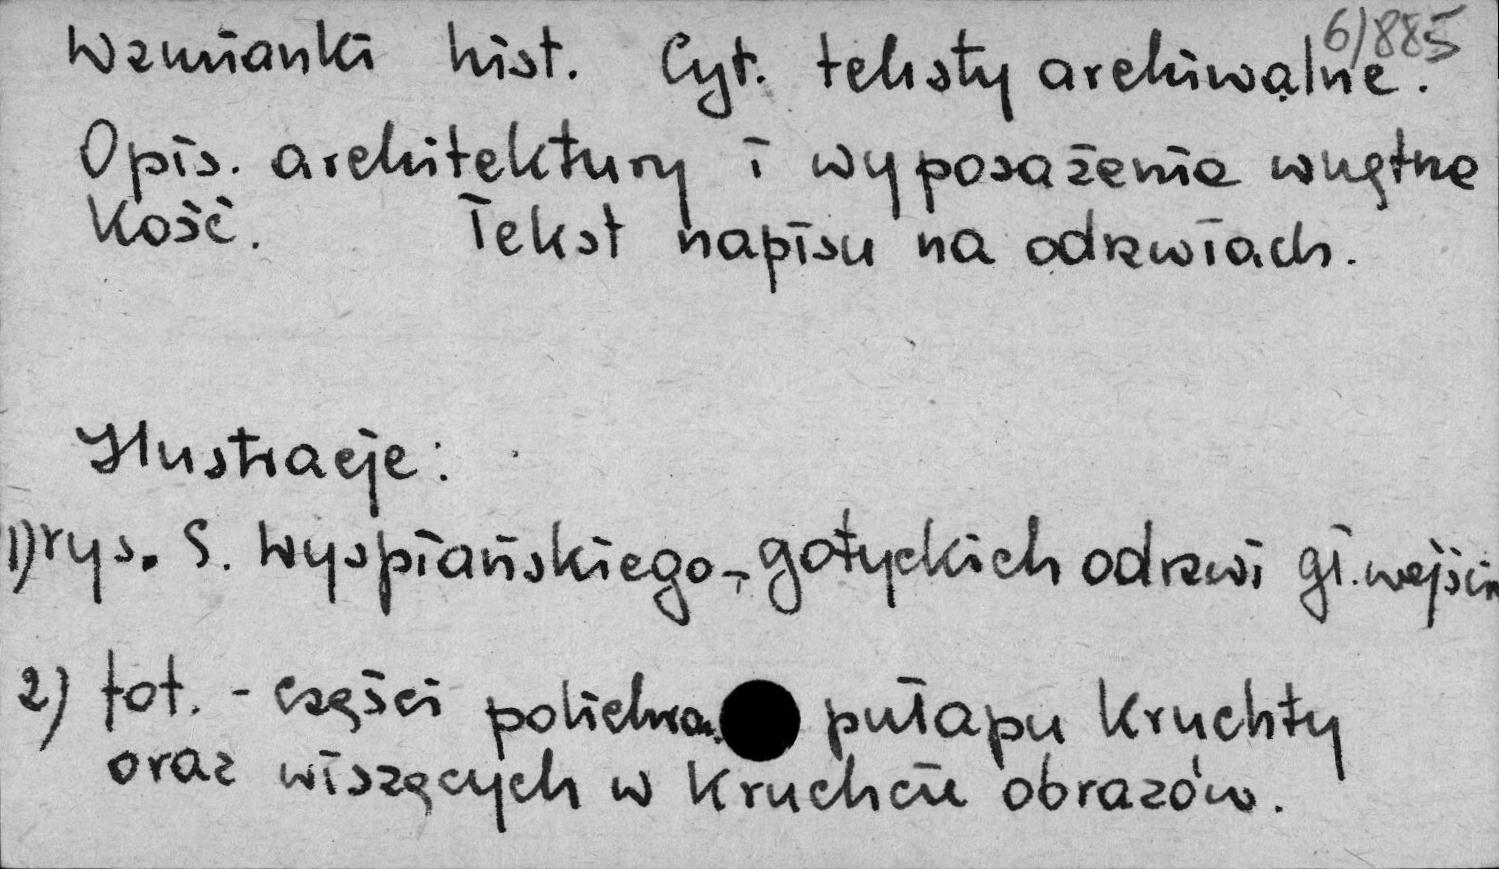 6/885
Wzmianki hist. Cyt. teksty archiwalne.
Opis. architektury i wyposażenia wnętrza
Kość. Tekst napisu na odrzwiach.
Ilustracje:
1) rys. S. Wyspiańskiego - gotyckich odrzwi gł. wejścia
2) fot. - części polichr. pułapu Kruchty
oraz wiszących w Kruchcie obrazów.